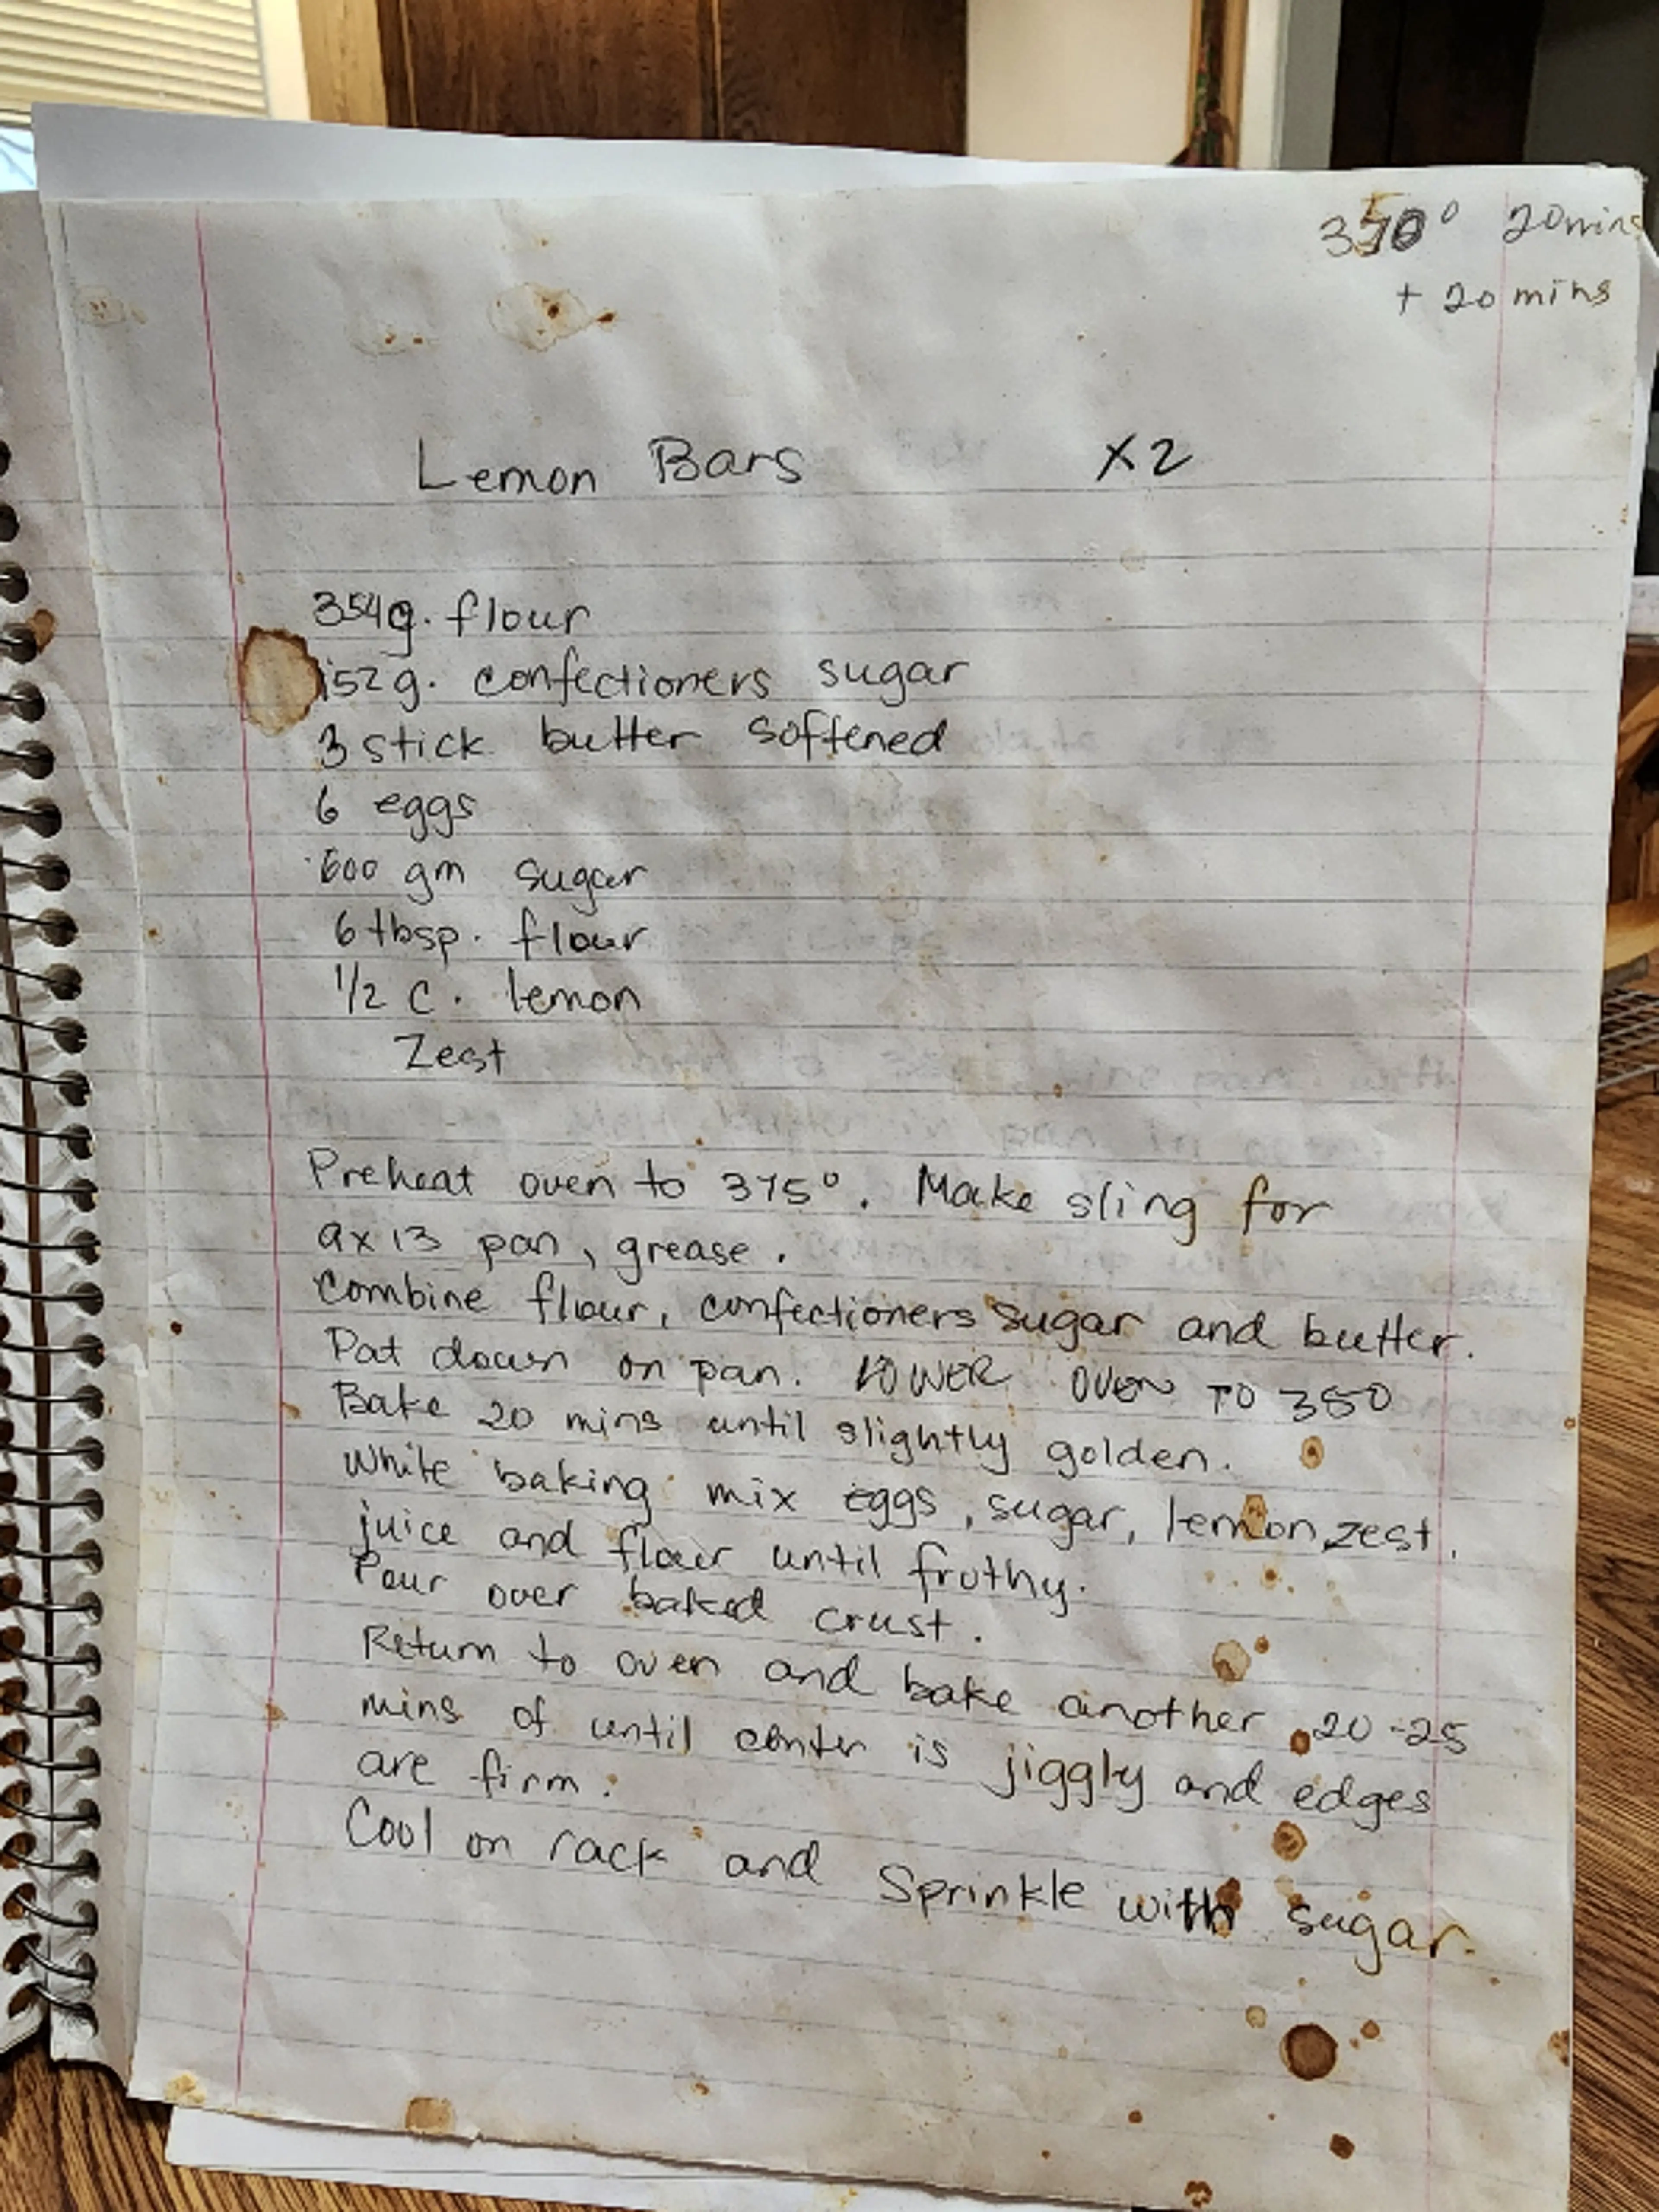 350° 20mins
+ 20 mins
Lemon Bars x2
354g. flour
152g. confectioners sugar
3 stick butter softened
6 eggs
600 gm sugar
6 tbsp. flour
1/2 c. lemon
Zest
Preheat oven to 375°. Make sling for
9x13 pan, grease.
Combine flour, confectioners sugar and butter.
Pat down on pan. LOWER OVEN TO 350
Bake 20 mins until slightly golden.
While baking mix eggs, sugar, lemon, zest,
juice and flour until frothy.
Pour over baked crust.
Return to oven and bake another 20-25
mins of until center is jiggly and edges
are firm.
Cool on rack and Sprinkle with sugar.